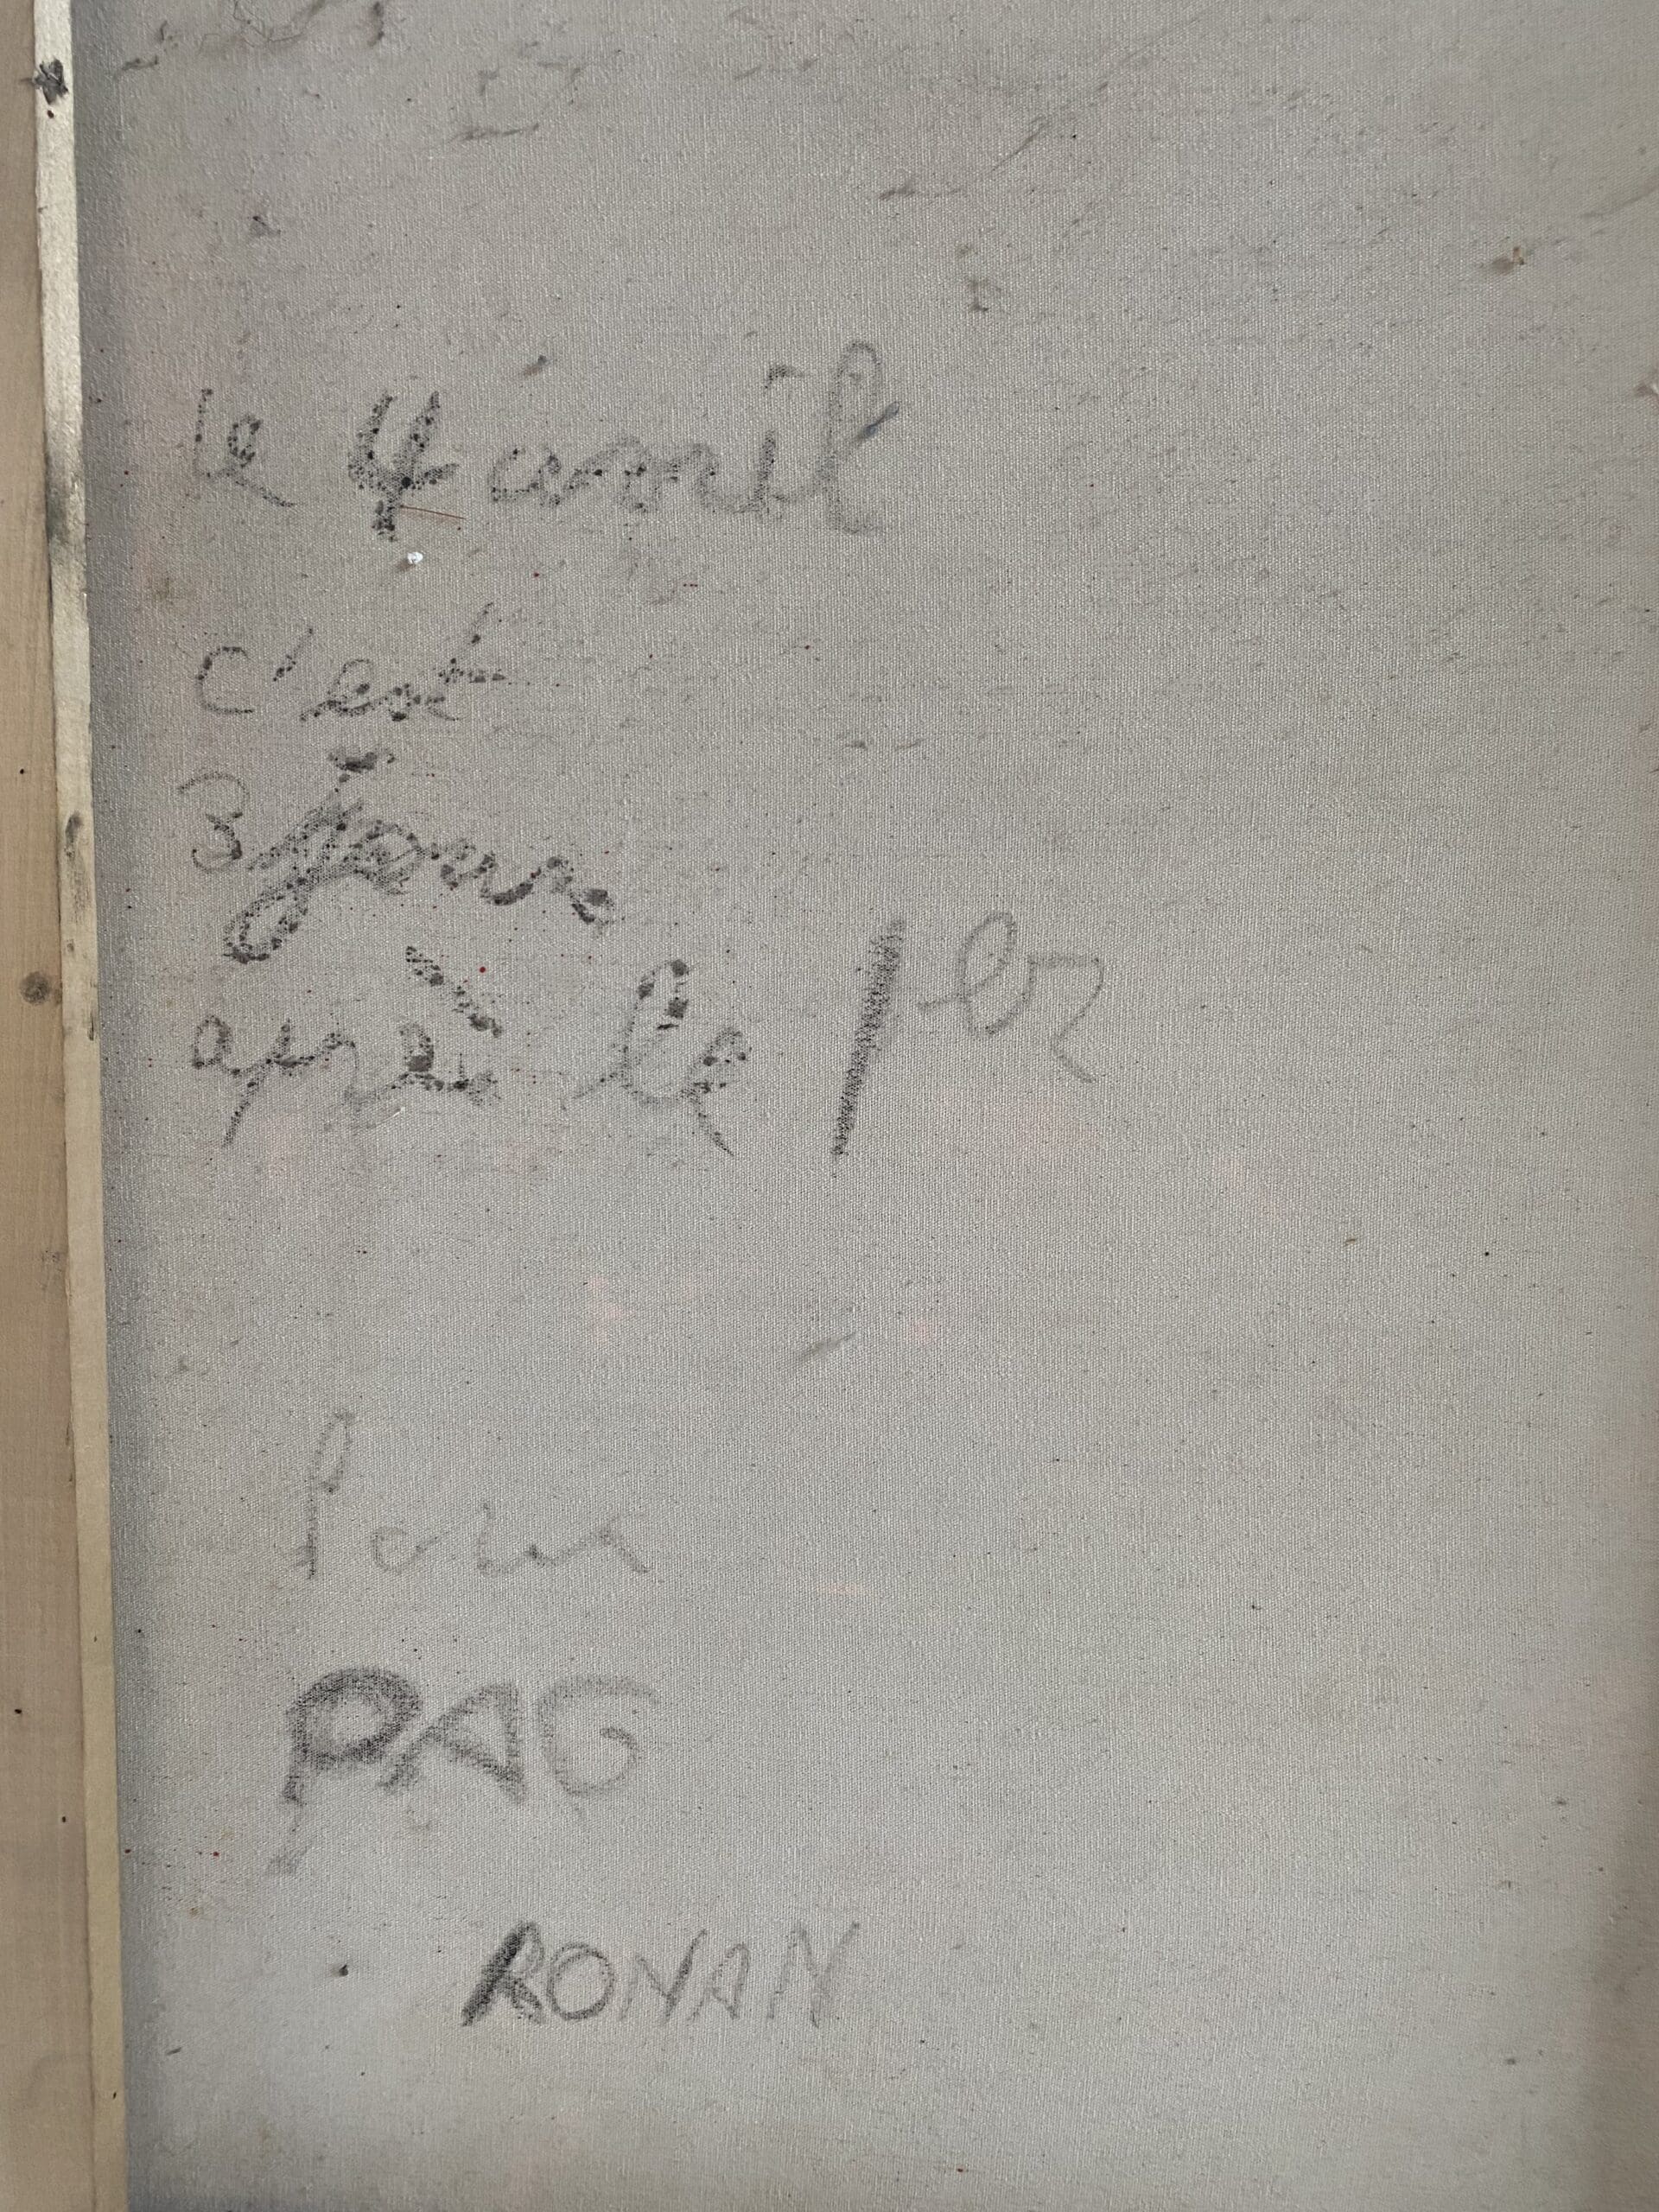 le 4 avril
c'est
3 jours
après le 1er
Pour
PAG
RONAN